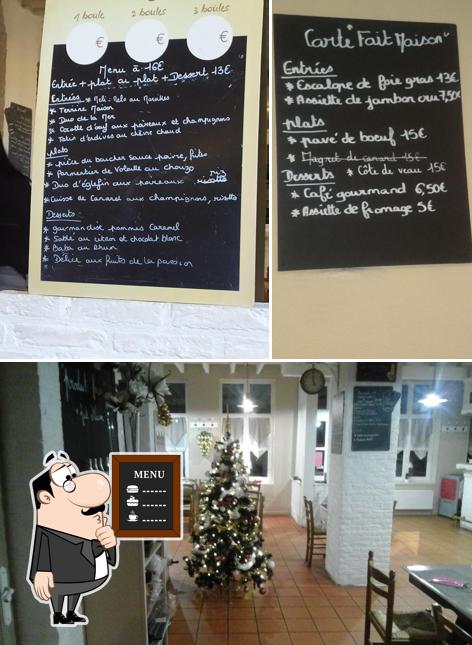 1 boule 2 boules 3 boules
€ € €
Menu à 16€
Entrée + plat ou plat + Dessert 13€
Entrées
* Terrine Maison
* Duo de la Mer
* Cocotte d'œuf aux poireaux et champignons
* Tatin d'endives au chèvre chaud
plats
* pièce du boucher sauce poivre, frites
* Parmentier de Volaille au chorizo
* Duo d'églefin aux poireaux riz
risotto
* Cuisse de Canard aux champignons, risotto
Desserts:
* gourmandise pommes Caramel
* Sablé au citron et chocolat blanc
* Baba au Rhum
* Délice aux fruits de la passion
Carte "Fait Maison"
Entrées
* Escalope de foie gras 13€
* Assiette de jambon cru 7,50€
plats
* pavé de boeuf 15€
* Magret de canard 15€
Desserts * Côte de veau 15€
* Café gourmand 6,50€
* Assiette de fromage 5€
MENU